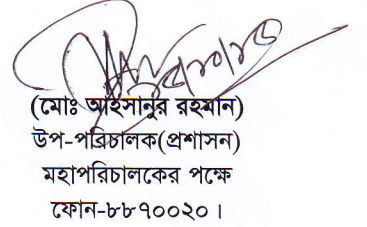 (মোঃ আহসানুর রহমান)
উপ-পরিচালক(প্রশাসন)
মহাপরিচালকের পক্ষে
ফোন-৮৮৭০০২০।